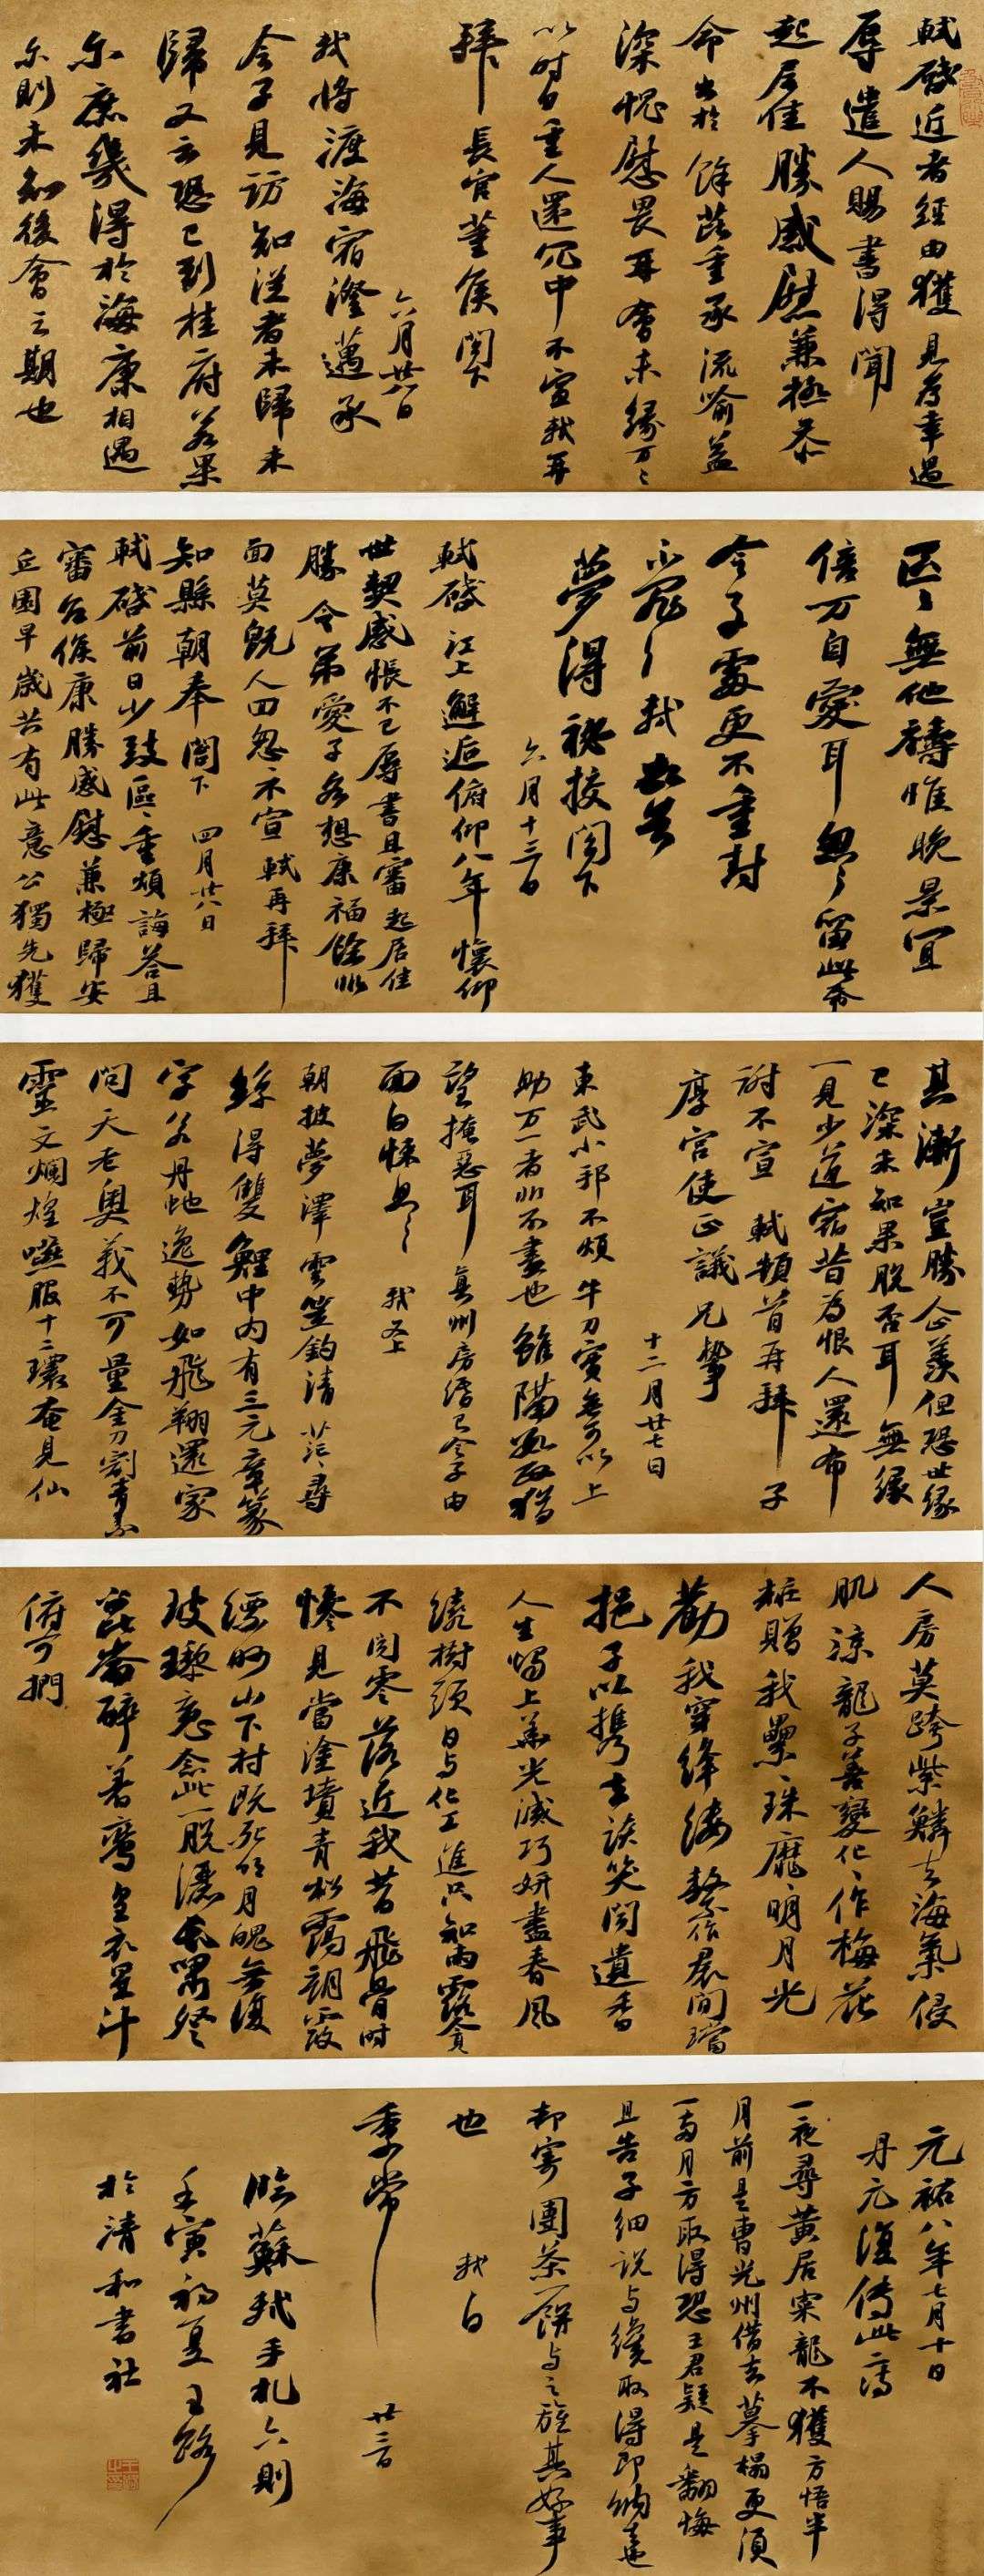 軾啓近者經由獲見爲幸過
辱遣人賜書得聞
起居佳勝感慰兼極忝
命出於餘芘重承流喻益
深愧慰畏耳會未緣万〻
以時自重人還冗中不宣軾再
拜
長官董侯閣下
六月廿八日
軾將渡海宿澄邁承
令子見訪知從者未歸未
歸又云恐已到桂府若果
尔庶幾得於海康相遇
尔則未知後會之期也
區〻無他禱惟晚景宜
倍万自愛耳忽〻留此帋
令子處更不重封
不罪〻軾頓首
夢得秘校閣下
六月十三日
軾啓江上邂逅俯仰八年懷仰
世契感悵不已辱書且審起居佳
勝令弟愛子各想康福餘非
面莫既人回忽〻不宣軾再拜
知縣朝奉閣下
四月廿八日
軾啓前日少致區〻重煩誨答且
審台候康勝感慰兼極歸安
丘園早歲共有此意公獨先獲
其漸豈勝企羨但恐世緣
已深未知果脫否耳無緣
一見少道宿昔爲恨人還布
謝不宣軾頓首再拜子
厚宮使正議兄執事
十二月廿七日
東武小邦不煩牛刀實無可以上
助万一者非不盡也雖隔數政猶
望掩惡耳真州房緡已令子由
面白悚息〻軾又上
朝披夢澤雲笠釣清茫〻尋
絲得雙鯉中内有三元章篆
字若丹虵逸勢如飛翔還家
問天老奥義不可量金刀割青素
靈文爛煌〻嚥服十二環奄見仙
人房莫跨紫鱗去海氣侵
肌涼龍子善變化〻作梅花
粧贈我纍〻珠靡〻明月光
勸我穿絳縷繫作裙間璫
挹子以攜去談笑聞遺香
人生燭上華光滅巧妍盡春風
繞樹頭日与化工進只知雨露貪
不聞零落近我昔飛骨時
慘見當塗墳青松靄朝霞
縹眇山下村既死明月魄無復
玻瓈䰟念此一脫灑長嘯祭
崑崙醉著鸞皇衣星斗
俯可捫
元祐八年七月十日
丹元復傳此二詩
一夜尋黄居寀龍不獲方悟半
月前是曹光州借去摹榻更須
一兩月方取得恐王君疑是翻悔
且告子細說与纔取得即納去也
却寄團茶一餅与之旌其好事
也
軾白
季常
廿三日
臨蘇軾手札六則
壬寅初夏王
於清和書社